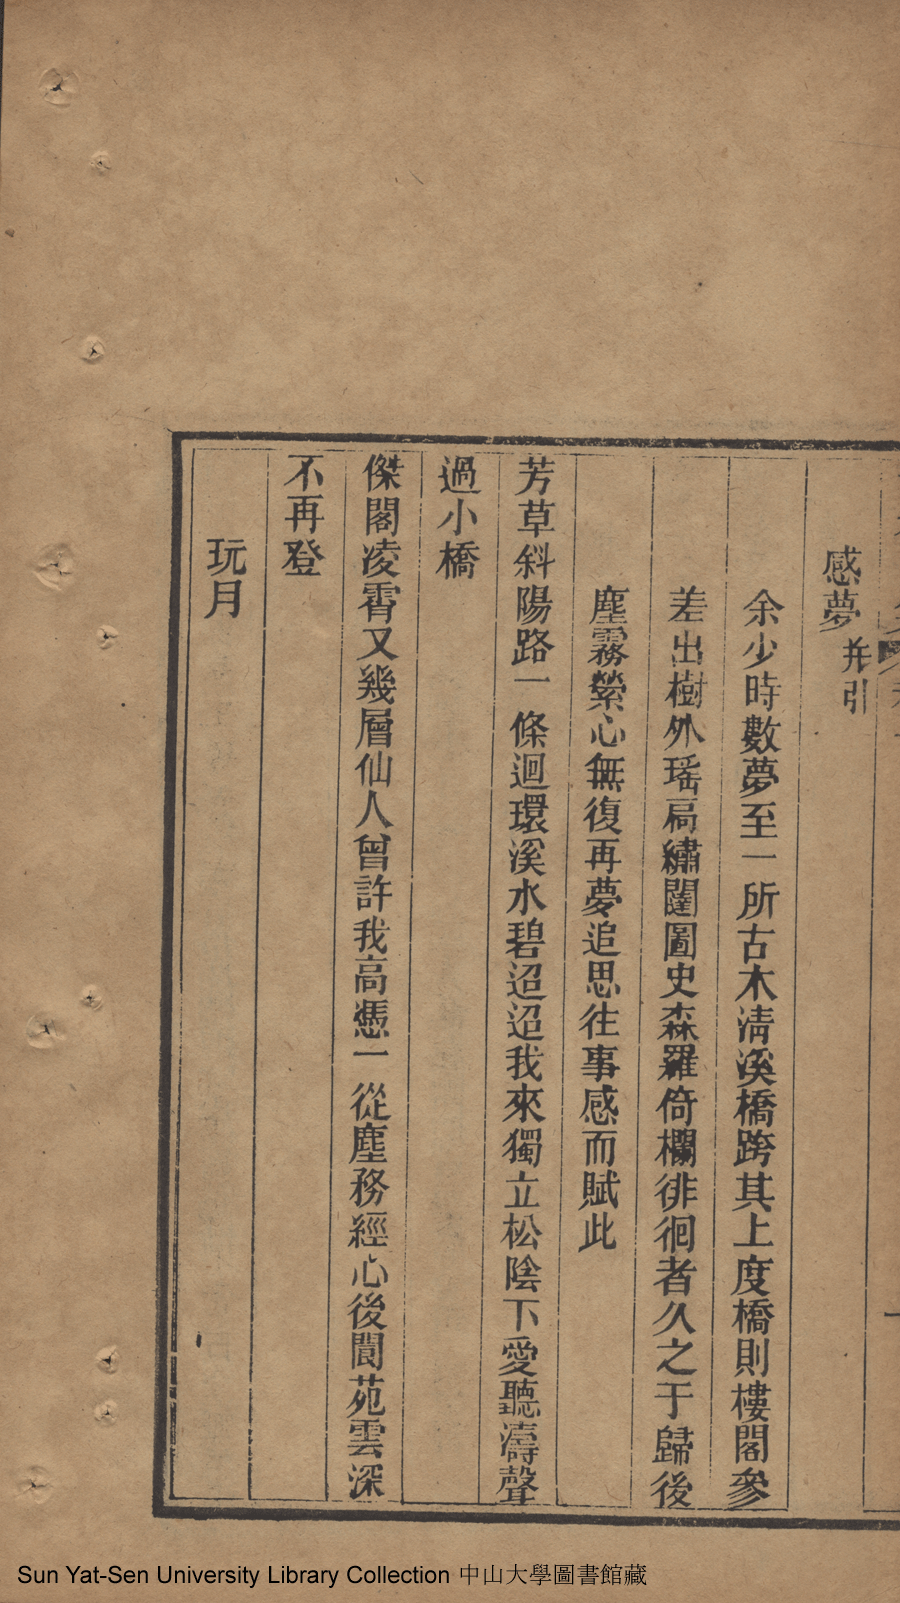 感夢并引
余少時數夢至一所古木清溪橋跨其上度橋則樓閣參
差出樹外瑤扃繡闥圖史森羅倚欄徘徊者久之于歸後
塵霧縈心無復再夢追思往事感而賦此
芳草斜陽路一條迴環溪水碧迢迢我來獨立松陰下愛聽濤聲
過小橋
傑閣凌霄又幾層仙人曾許我高憑一從塵務經心後閬苑雲深
不再登
玩月
Sun Yat-Sen University Library Collection 中山大學圖書館藏